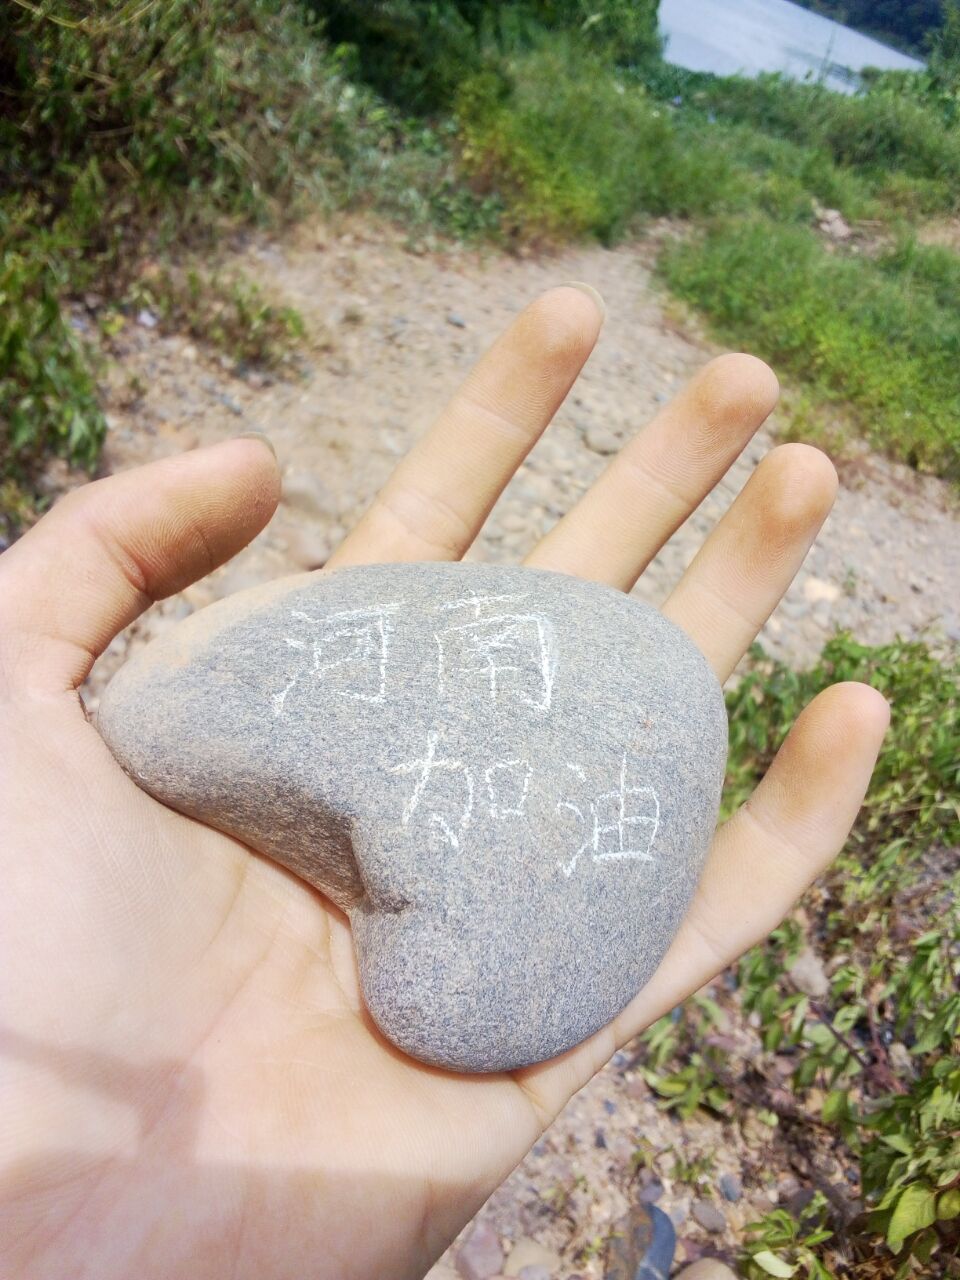 河南
加油